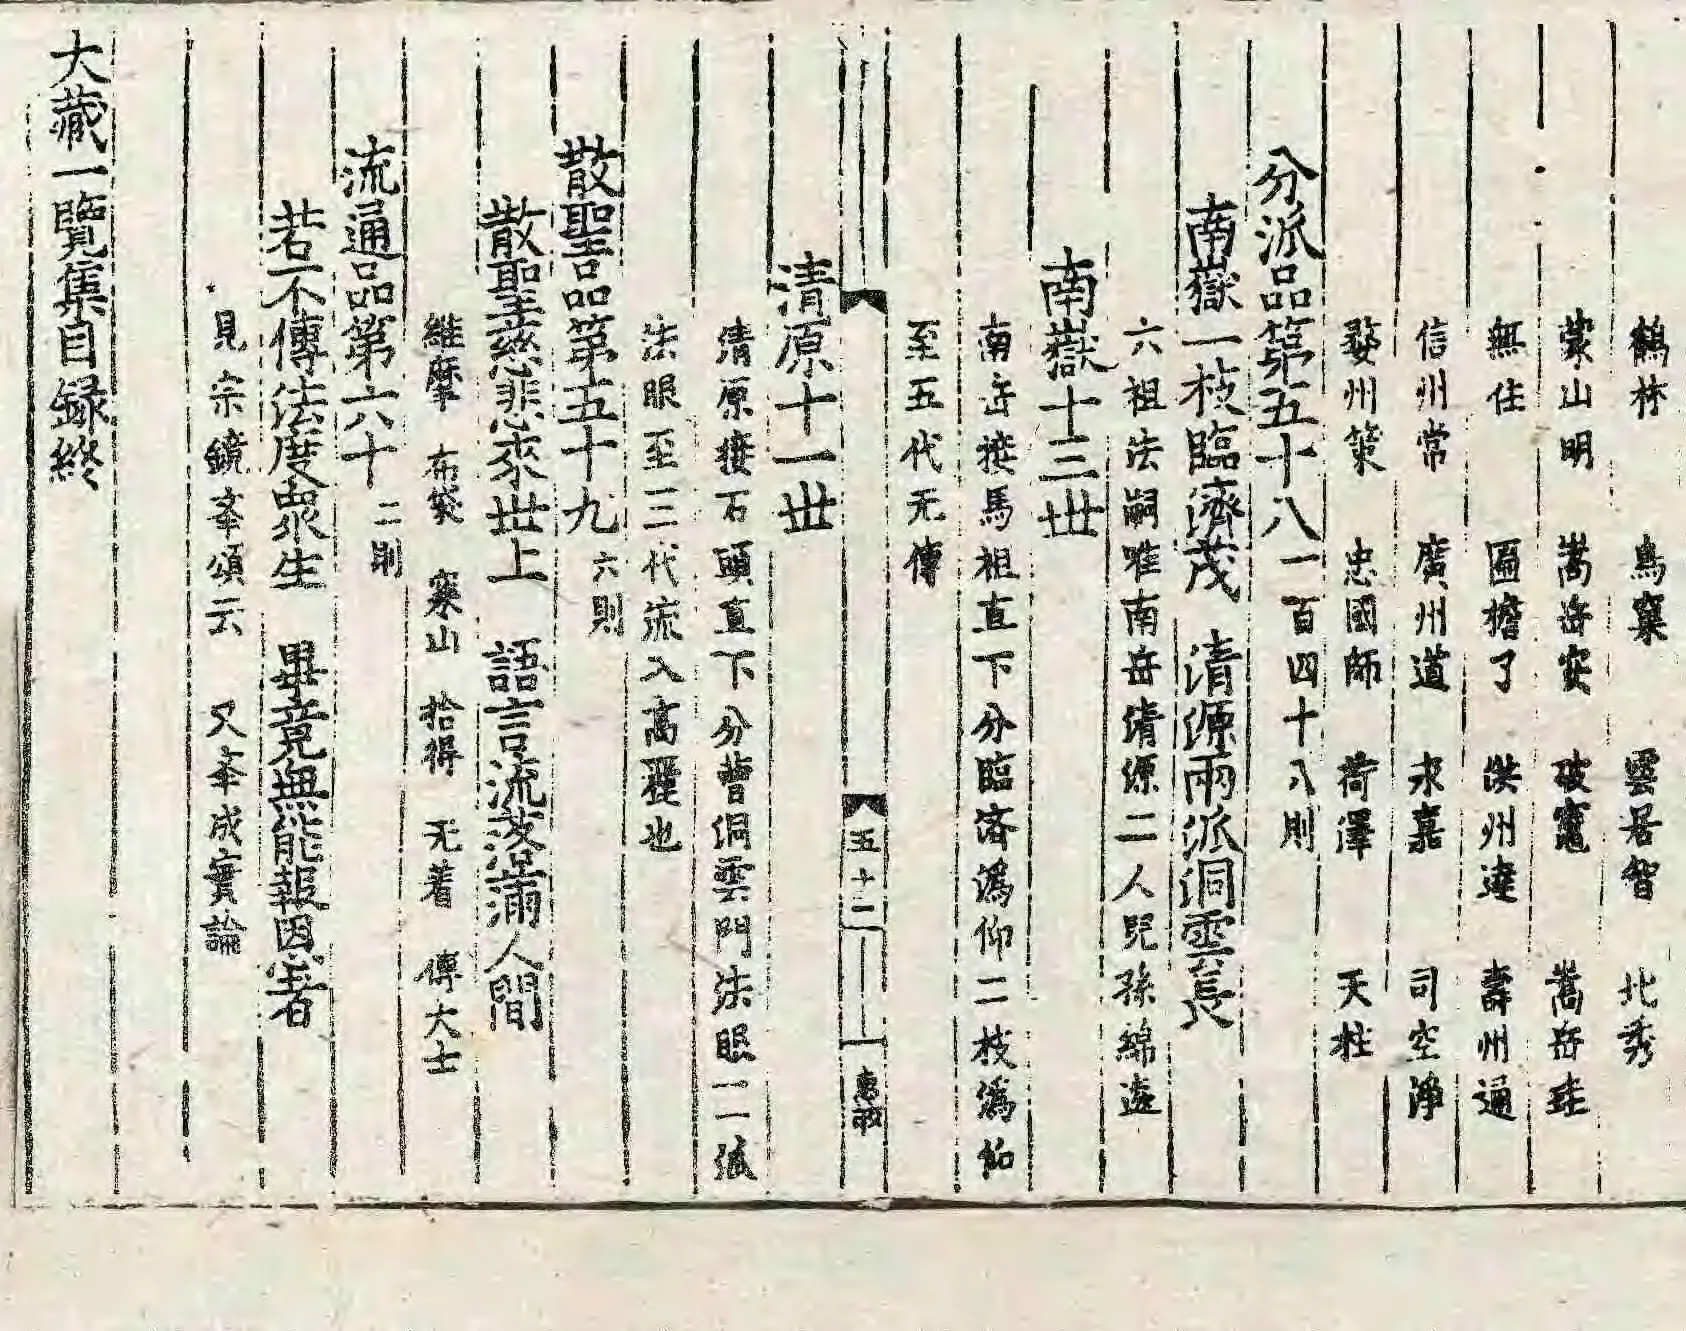 鶴林　鳥窠　雲居智　北秀
蒙山明　嵩岳安　破竈　嵩岳珪
無住　匾檐了　洪州達　壽州通
信州常　廣州道　永嘉　司空淨
婺州策　忠國師　荷澤　天柱
分派品第五十八　一百四十八則
南嶽一枝臨濟茂　清源兩派洞雲長
六祖法嗣唯南岳清源二人兒孫綿遠
南嶽十三世
南岳接馬祖直下分臨济溈仰二枝溈仰
至五代无傳
清原十一世
清原接石頭直下分曹洞雲門法眼二派
法眼至三代流入高麗也
散聖品第五十九　六則
散聖慈悲來世上　語言流落滿人間
維摩　布袋　寒山　拾得　无着　傅大士
流通品第六十　二則
若不傳法度衆生　畢竟無能報恩者
見宗鏡夆頌云　又夆成實論
大藏一覽集目録終
五十二
惠敬